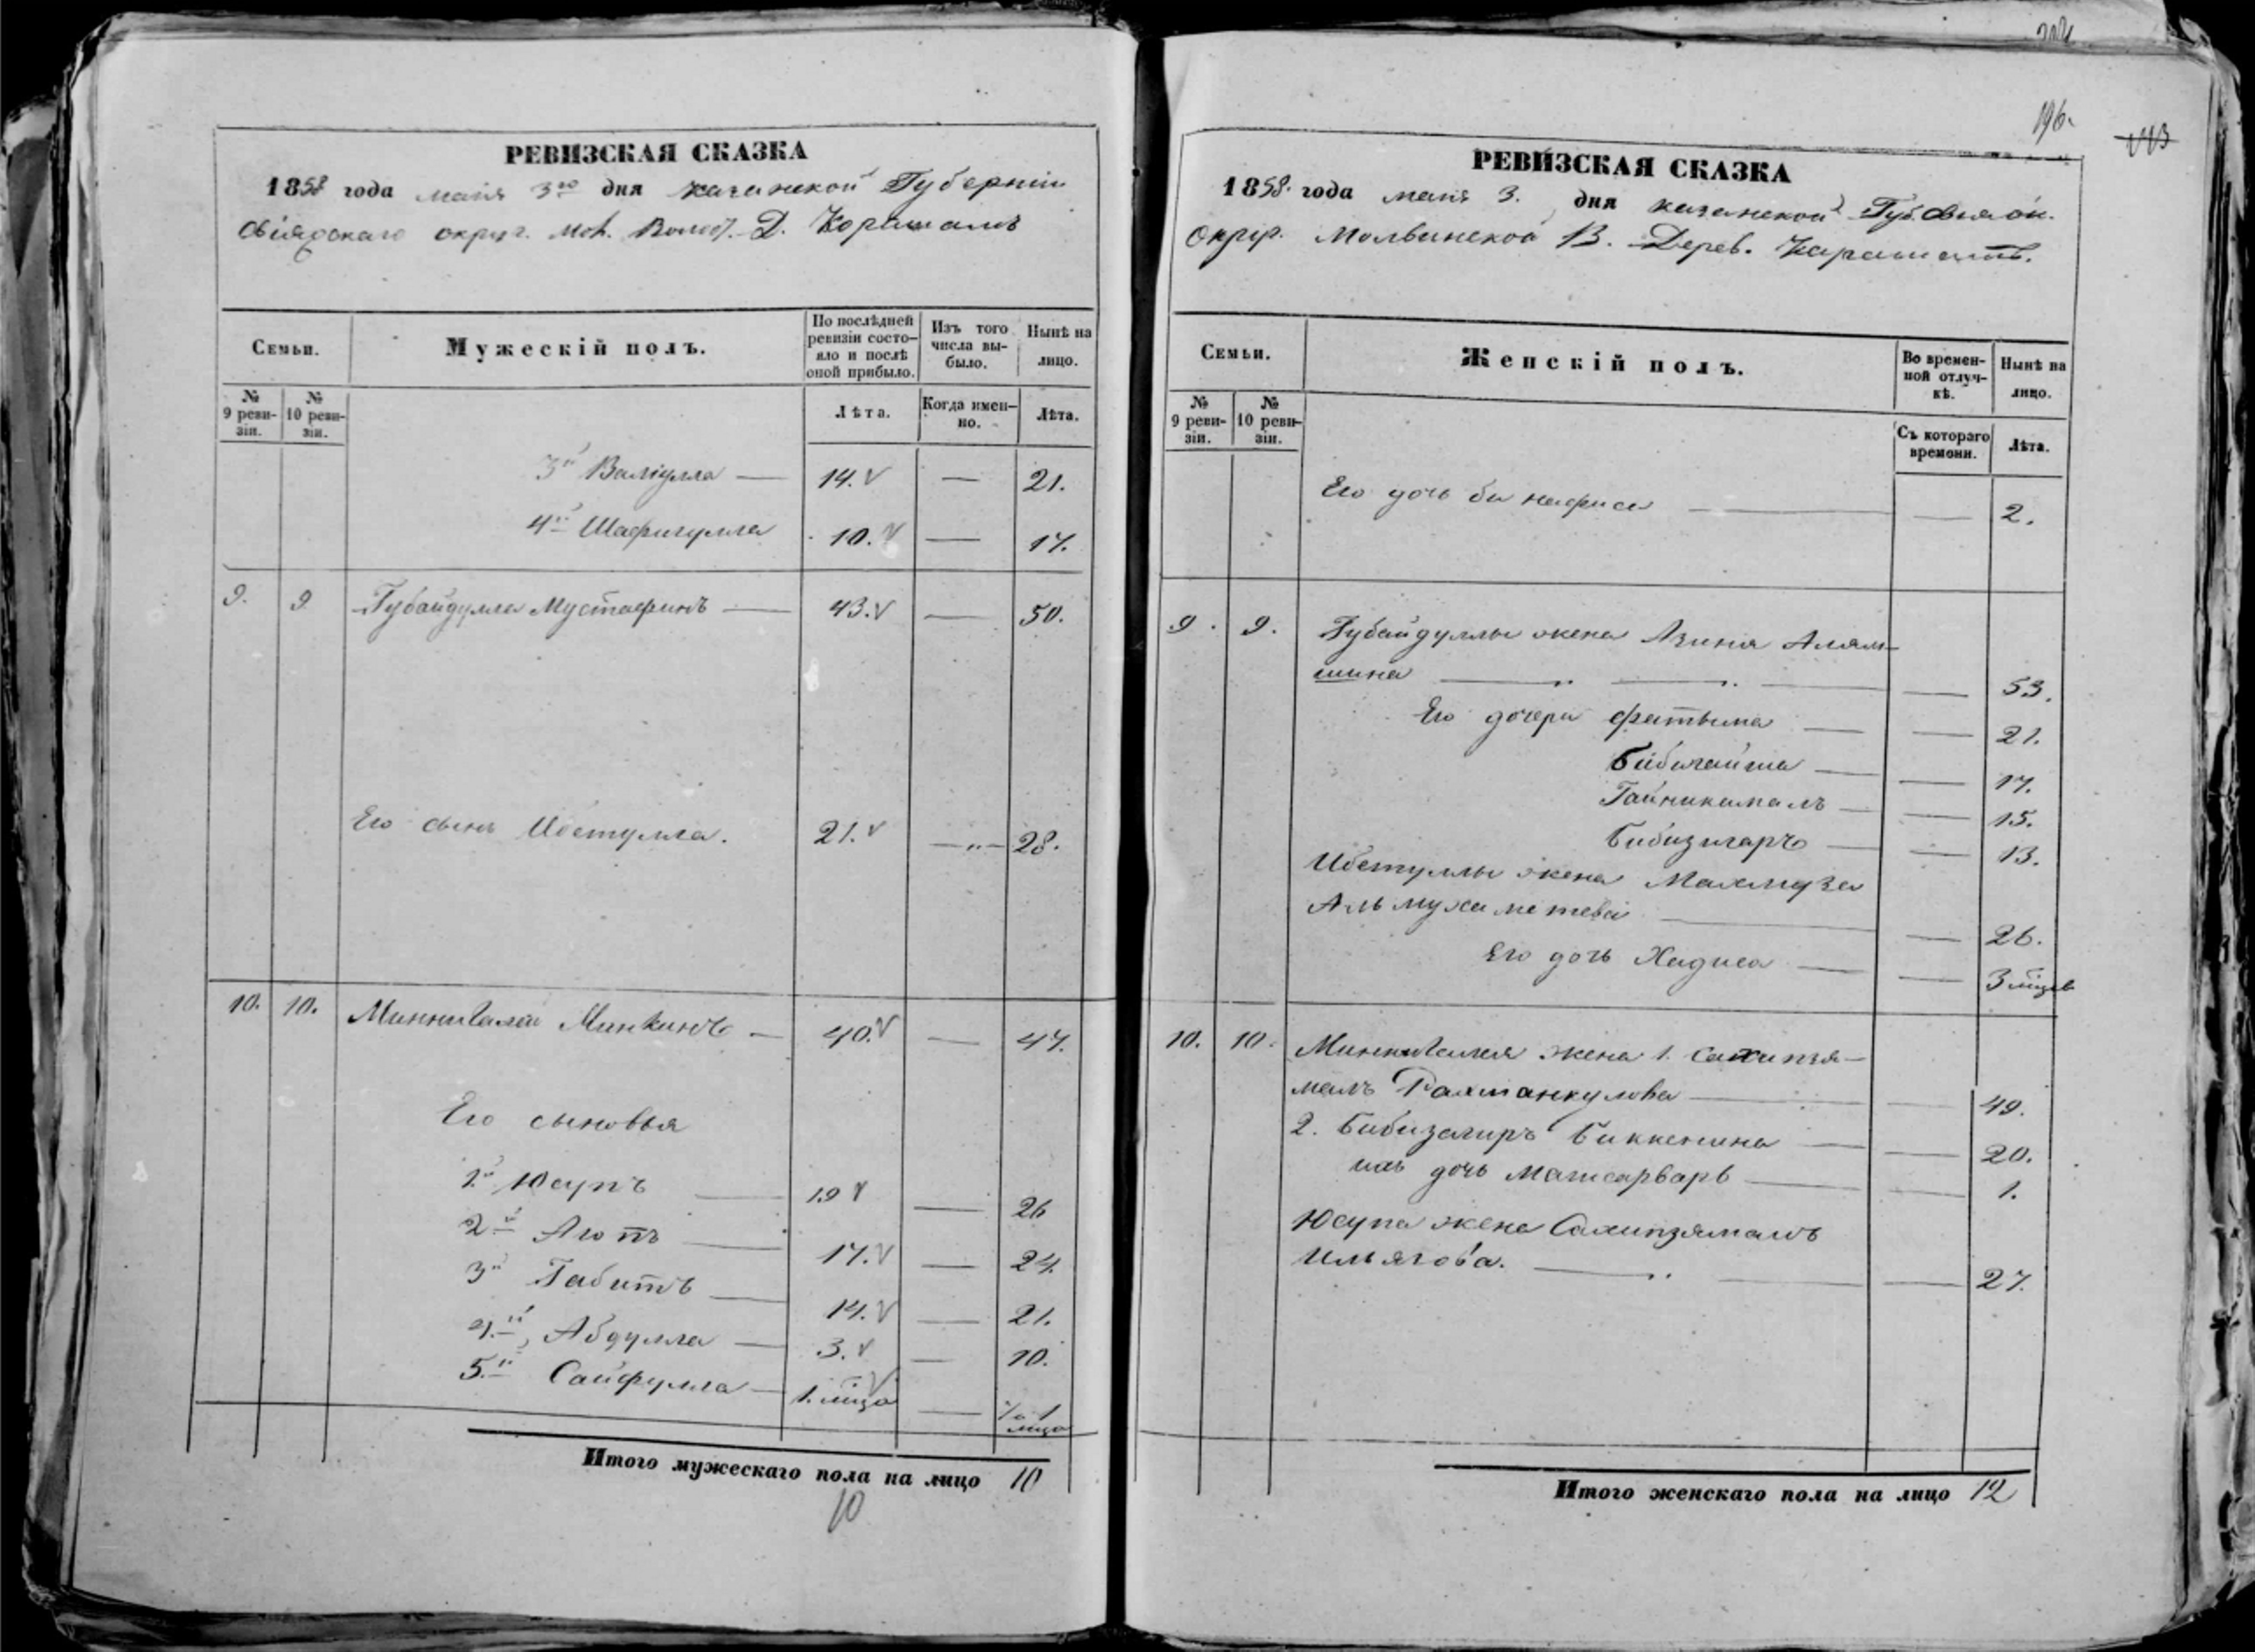 196.
РЕВИЗСКАЯ СКАЗКА
1858 года маія 3го дня Казанской Губерніи
Свіяжскаго округ. Мол. Волост. Д. Карашамъ
Семьи.
Мужескій полъ.
По послѣдней ревизіи состояло и послѣ оной прибыло.
Изъ того числа выбыло.
Нынѣ на лицо.
№ 9 ревизіи.
№ 10 ревизіи.
Лѣта.
Когда именно.
Лѣта.
3й Валіулла — 14. — 21.
4й Шафигулла 10. — 17.
9. 9 Губайдулла Мустафинъ — 43. — 50.
Его сынъ Ибетулла. 21. — 28.
10. 10. Миннигалей Минкинъ — 40. — 47.
Его сыновья
1й Юсупъ — 19 — 26
2й Аюпъ — 17. — 24.
3й Габитъ — 14. — 21.
4.й Абдулла — 3. — 10.
5.й Сайфулла — 1.
Итого мужескаго пола на лицо 10
10
РЕВИЗСКАЯ СКАЗКА
1858. года маія 3. дня Казанской Губ. Свіяж.
Округ. Молвинской В. Дерев. Карашамъ.
Семьи.
Женскій полъ.
Во временной отлучкѣ.
Нынѣ на лицо.
№ 9 ревизіи.
№ 10 ревизіи.
Съ котораго времени.
Лѣта.
Его дочь Би нафиса — — 2.
9. 9. Губайдуллы жена Азиия Алям-
шина — — 53.
Его дочери Фатыма — — 21.
Бибигайша — — 17.
Гайникамалъ — — 15.
Бибизигаръ — — 13.
Ибетуллы жена Махмуза
Альмухаметева — — 26.
Его дочь Хадиса — — 3 мѣсяц
10. 10. Миннигалея жена 1. Сахипзя-
малъ Рахманкулова — — 49.
2. Бибизагиръ Биккенина — — 20.
ихъ дочь Магисарваръ — — 1.
Юсупа жена Сахипзямалъ
Ильясова. — — 27.
Итого женскаго пола на лицо 12